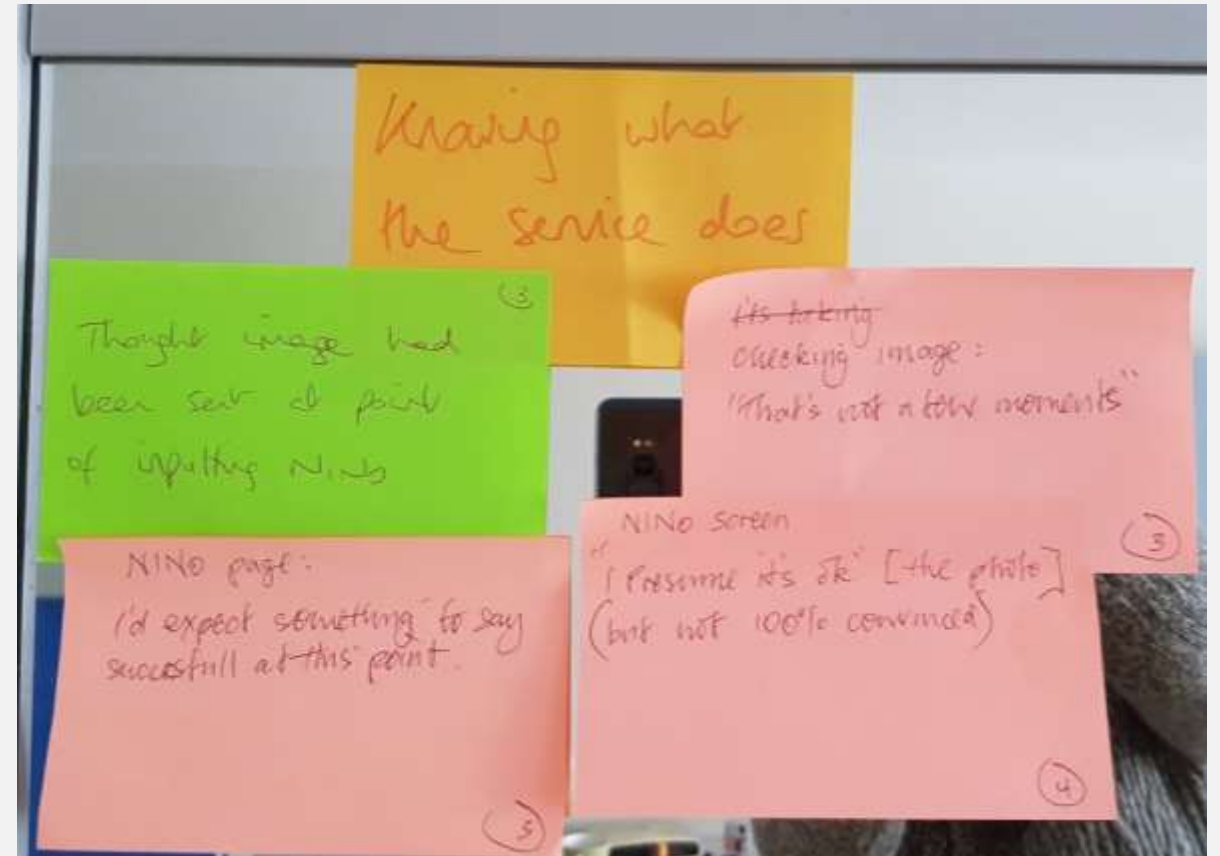 Knowing what
the service does
3
Thought image had
been sent at point
of inputting NINo
its taking
checking image:
"That's not a few moments"
3
NINo page:
i'd expect something to say
succesfull at this point.
NINo screen
"I Presume it's ok" [the photo]
(but not 100% convinced)
4